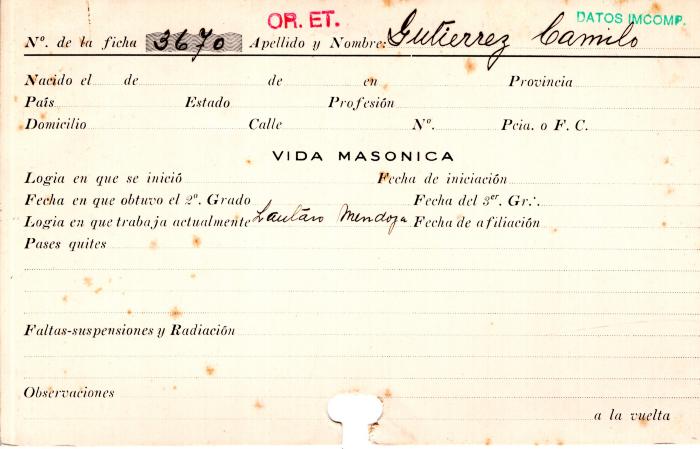 OR. ET. DATOS IMCOMP.
Nº. de la ficha 3670 Apellido y Nombre: Gutierrez Camilo
Nacido el de de en Provincia
País Estado Profesión
Domicilio Calle Nº. Pcia. o F. C.
VIDA MASONICA
Logia en que se inició Fecha de iniciación
Fecha en que obtuvo el 2º. Grado Fecha del 3er. Gr∴
Logia en que trabaja actualmente Lautaro Mendoza Fecha de afiliación
Pases quites
Faltas-suspensiones y Radiación
Observaciones
a la vuelta